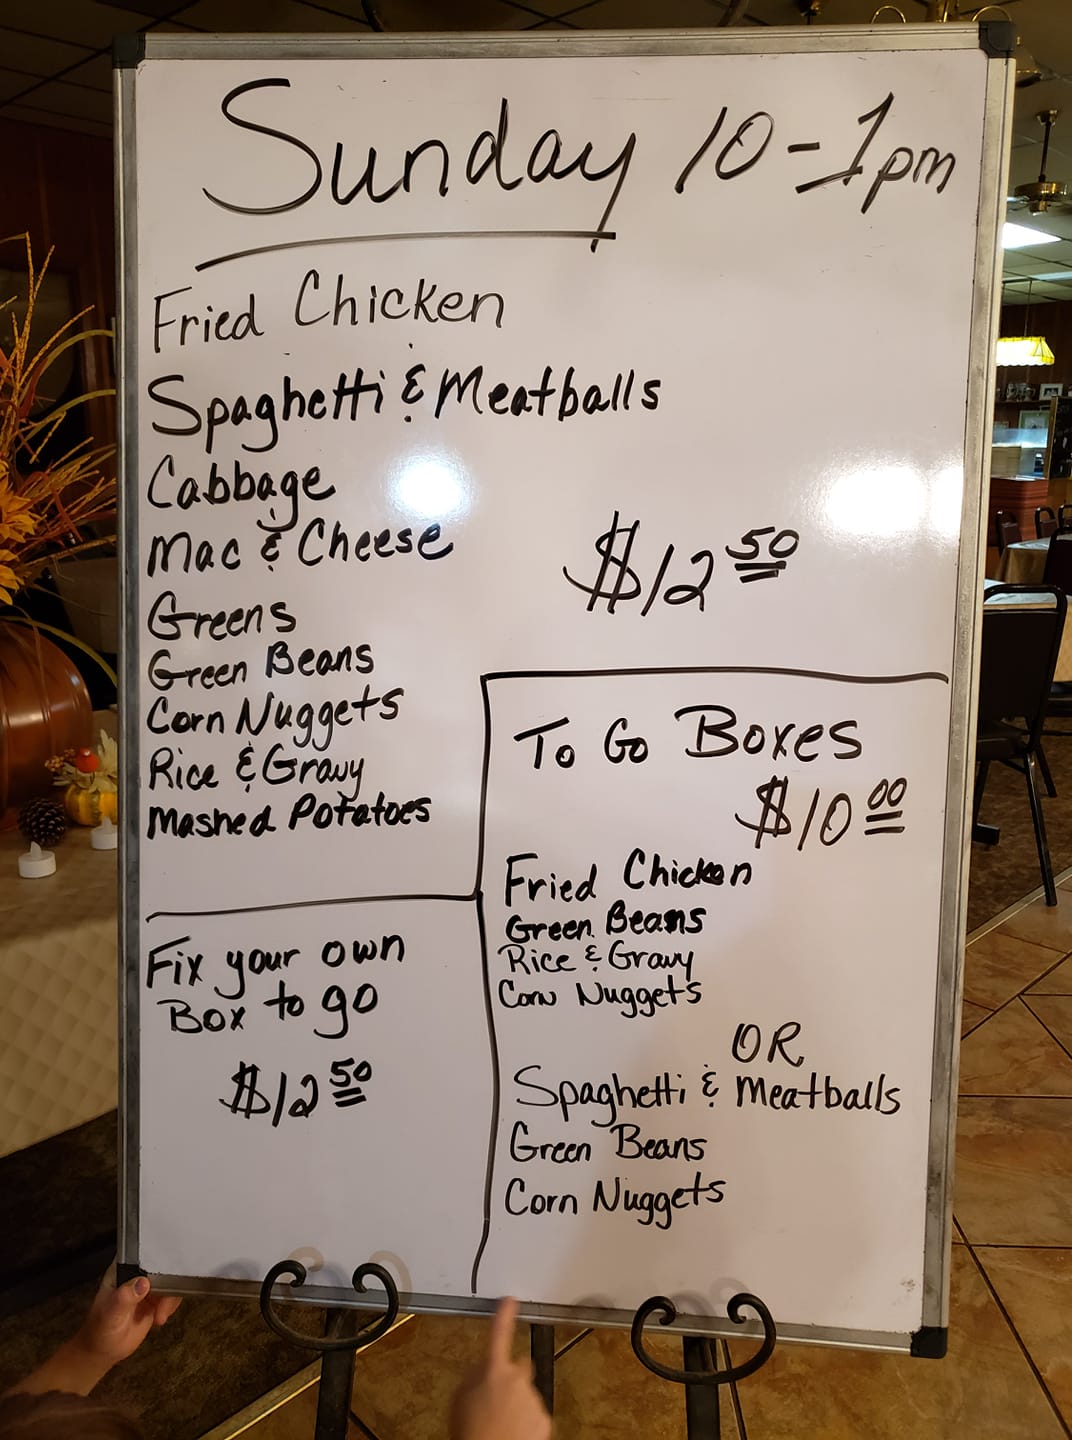 Sunday 10-1pm
Fried Chicken
Spaghetti & Meatballs
Cabbage
Mac & Cheese
Greens
Green Beans
Corn Nuggets
Rice & Gravy
Mashed Potatoes
$12 50
Fix your own
Box to go
$12 50
To Go Boxes
$10 00
Fried Chicken
Green Beans
Rice & Gravy
Corn Nuggets
OR
Spaghetti & Meatballs
Green Beans
Corn Nuggets